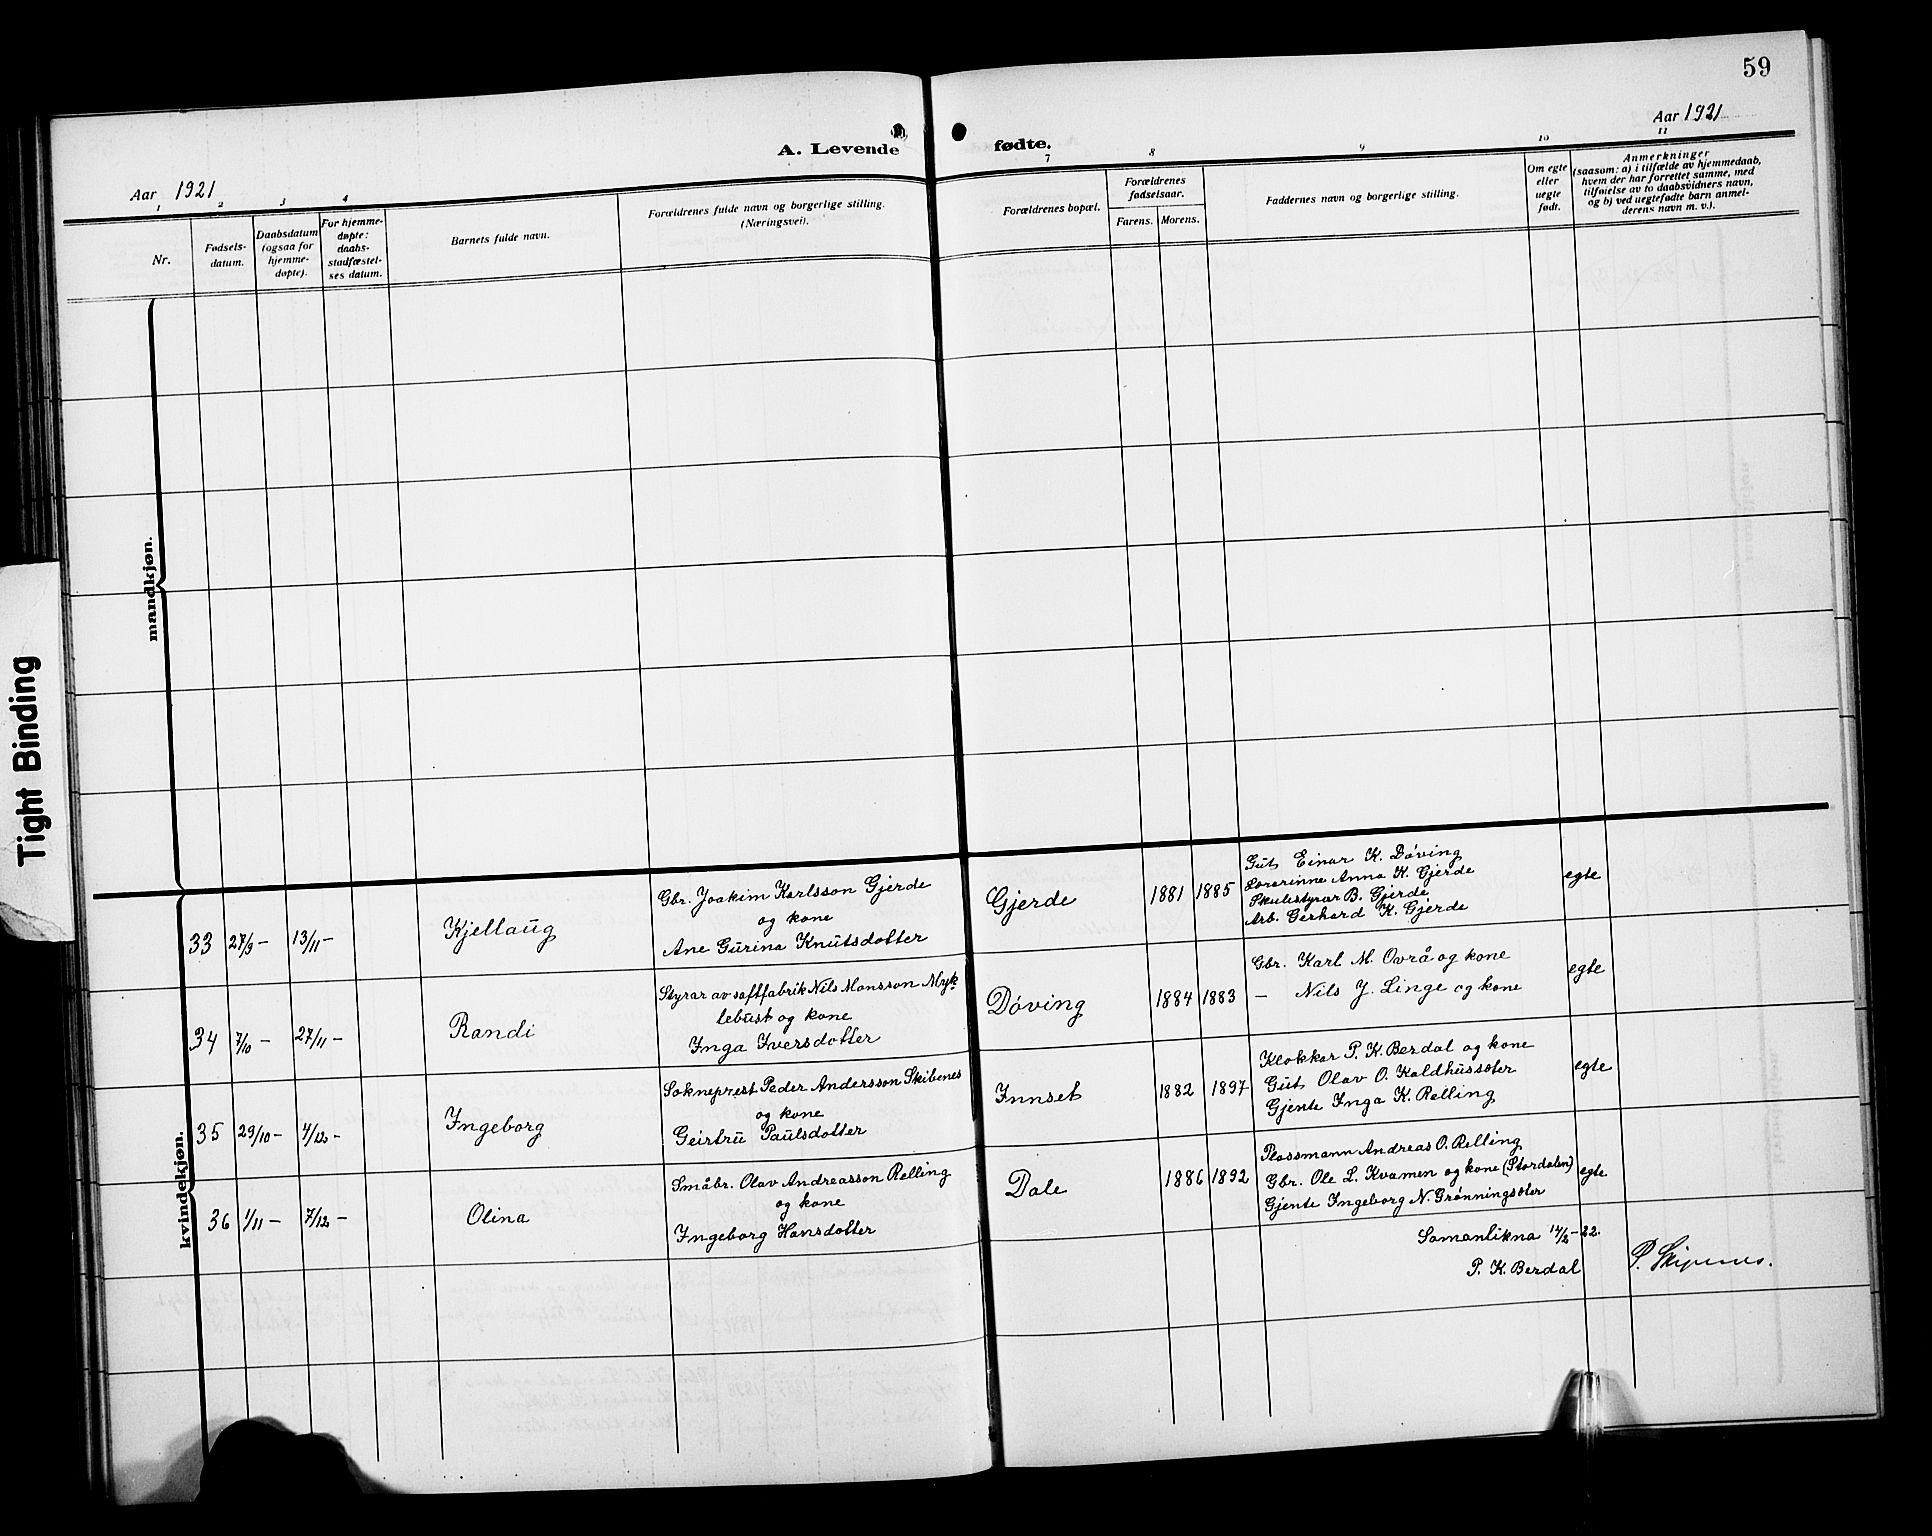 59
Aar 1921
A. Levende fødte.
Aar 1921
1 2 3 4 7 8 9 10 11
Nr.
Fødsels-
datum.
Daabsdatum
(ogsaa for
hjemme-
døpte).
For hjemme-
døpte:
daabs-
stadfæstel-
ses datum.
Barnets fulde navn.
Forældrenes fulde navn og borgerlige stilling.
(Næringsvei).
Forældrenes bopæl.
Forældrenes
fødselsaar.
Farens. Morens.
Faddernes navn og borgerlige stilling.
Om egte
eller
uegte
født.
Anmerkninger
(saasom: a) i tilfælde av hjemmedaab,
hvem der har forrettet samme, med
tilføielse av to daabsvidners navn,
og b) ved uegtefødte barn anmel-
derens navn m. v.).
mandkjøn.
Tight Binding
kvindekjøn.
33 27/9 – 13/11 – Kjellaug
Gbr. Joakim Karlsson Gjerde
og kone
Ane Gurina Knutsdotter
Gjerde 1881 1885
Gut Einar K. Døving
Lærarinne Anna K. Gjerde
Skulestyrar B. Gjerde
Arb. Gerhard K. Gjerde
egte
34 7/10 – 27/11 – Randi
Styrar av saftfabrik Nils Monsson Myk-
lebust og kone
Inga Iversdotter
Døving 1884 1883
Gbr. Karl M. Ovrå og kone
– Nils J. Linge og kone
egte
35 29/10 – 4/12 – Ingeborg
Sokneprest Peder Andersson Skibenes
og kone
Geirtru Paulsdotter
Innset 1882 1897
Klokkar P. K. Berdal og kone
Gut Olav O. Kaldhussæter
Gjente Inga K. Relling
egte
36 1/11 – 7/12 – Olina
Småbr. Olav Andreasson Relling
og kone
Ingeborg Hansdotter
Dale 1886 1892
Plassmann Andreas O. Relling
Gbr. Ole L. Kvamen og kone (Stordalen)
Gjente Ingeborg N. Grønningsæter
egte
Samanlikna 14/2 – 22.
P. K. Berdal
P. Skipenes.